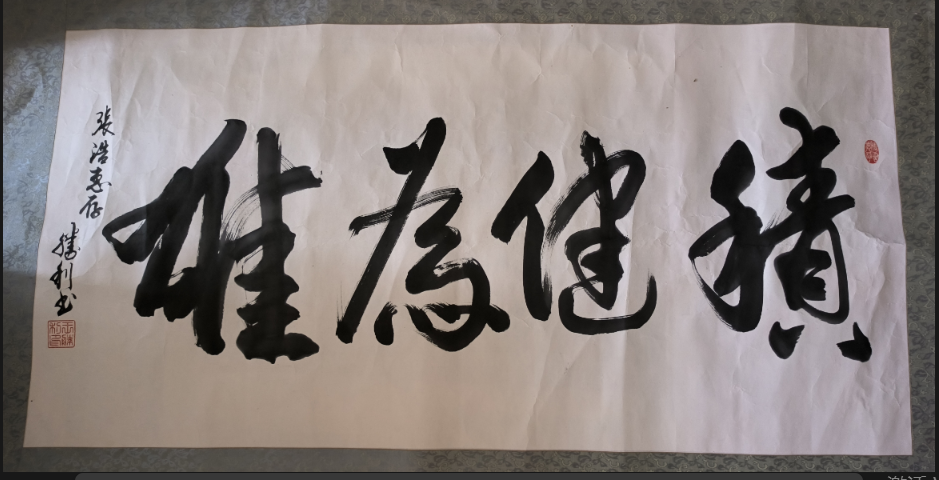 積健為雄
張浩惠存
勝利书